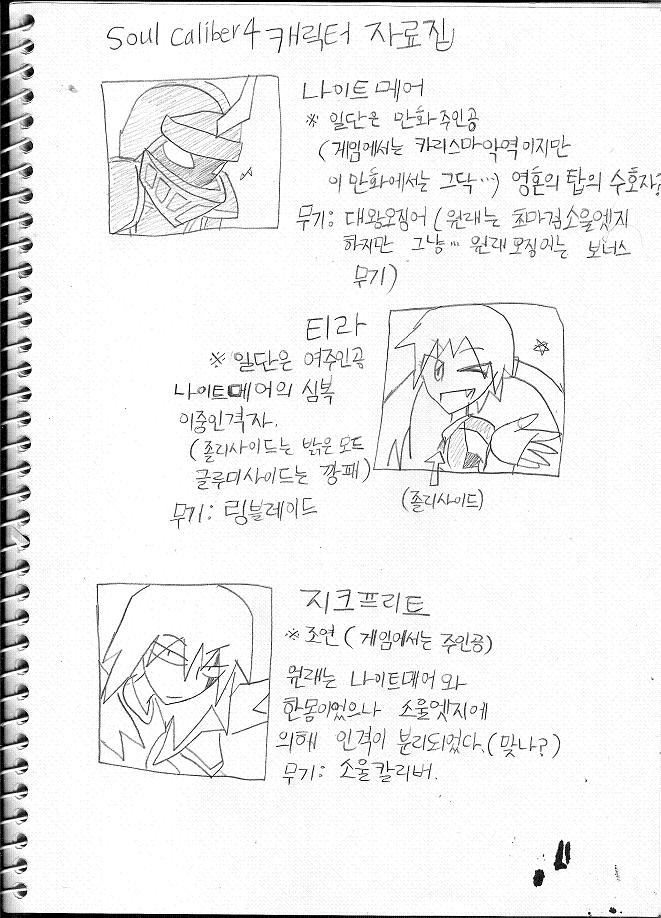 Soul Caliber4 캐릭터 자료집
나이트메어
※ 일단은 만화주인공
(게임에서는 카리스마악역이지만
이 만화에서는 그닥…) 영혼의 탑의 수호자?
무기: 대왕오징어 (원래는 초마검소울엣지
하지만 그냥… 원래오징어는 보너스
무기)
티라
※ 일단은 여주인공
나이트메어의 심복
이중인격자.
(졸리사이드는 밝은모드
글루미사이드는 깡패)
무기: 링블레이드
(졸리사이드)
지크프리트
※조연 (게임에서는 주인공)
원래는 나이트메어와
한몸이었으나 소울엣지에
의해 인격이 분리되었다.(맞나?)
무기: 소울칼리버.